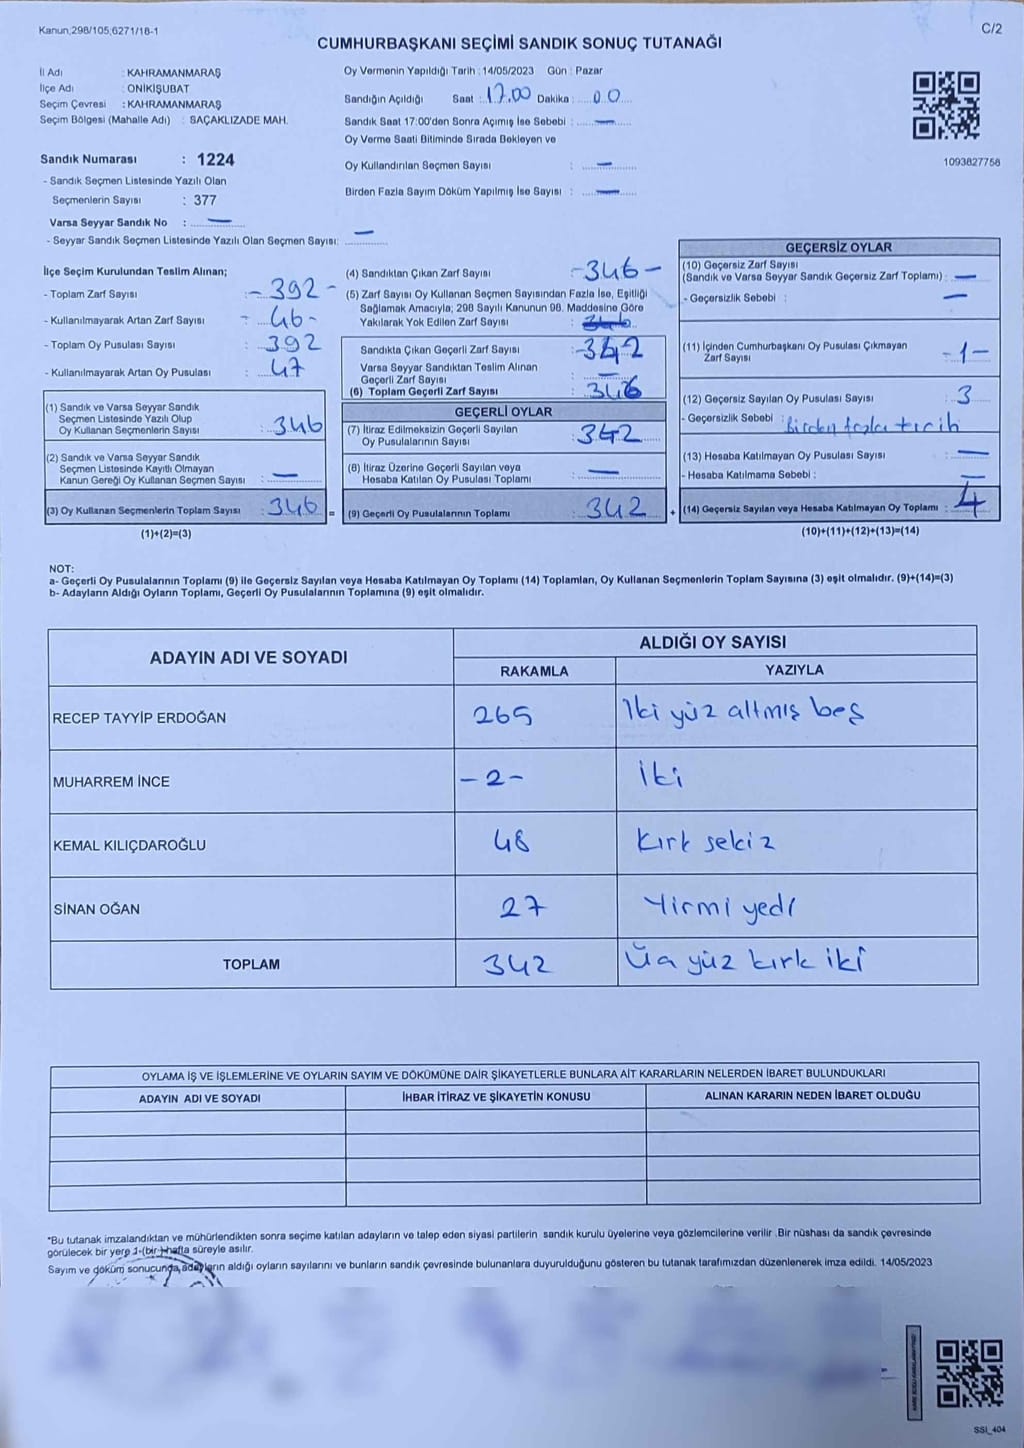 Kanun;298/105;6271/18-1
C/2
CUMHURBAŞKANI SEÇİMİ SANDIK SONUÇ TUTANAĞI
İl Adı : KAHRAMANMARAŞ
İlçe Adı : ONİKİŞUBAT
Seçim Çevresi : KAHRAMANMARAŞ
Seçim Bölgesi (Mahalle Adı) : SAÇAKLIZADE MAH.
Sandık Numarası : 1224
- Sandık Seçmen Listesinde Yazılı Olan
Seçmenlerin Sayısı : 377
Varsa Seyyar Sandık No : —
- Seyyar Sandık Seçmen Listesinde Yazılı Olan Seçmen Sayısı: —
Oy Vermenin Yapıldığı Tarih : 14/05/2023 Gün : Pazar
Sandığın Açıldığı Saat : 17.00 Dakika : 00
Sandık Saat 17:00'den Sonra Açımış İse Sebebi : —
Oy Verme Saati Bitiminde Sırada Bekleyen ve
Oy Kullandırılan Seçmen Sayısı : —
Birden Fazla Sayım Döküm Yapılmış İse Sayısı : —
1093827758
İlçe Seçim Kurulundan Teslim Alınan;
- Toplam Zarf Sayısı : -392-
- Kullanılmayarak Artan Zarf Sayısı : 46-
- Toplam Oy Pusulası Sayısı : 392
- Kullanılmayarak Artan Oy Pusulası : 47
(1) Sandık ve Varsa Seyyar Sandık
Seçmen Listesinde Yazılı Olup
Oy Kullanan Seçmenlerin Sayısı : 346
(2) Sandık ve Varsa Seyyar Sandık
Seçmen Listesinde Kayıtlı Olmayan
Kanun Gereği Oy Kullanan Seçmen Sayısı : —
(3) Oy Kullanan Seçmenlerin Toplam Sayısı : 346 =
(1)+(2)=(3)
(4) Sandıktan Çıkan Zarf Sayısı -346-
(5) Zarf Sayısı Oy Kullanan Seçmen Sayısından Fazla İse, Eşitliği
Sağlamak Amacıyla, 298 Sayılı Kanunun 98. Maddesine Göre
Yakılarak Yok Edilen Zarf Sayısı :
Sandıkta Çıkan Geçerli Zarf Sayısı : 342
Varsa Seyyar Sandıktan Teslim Alınan
Geçerli Zarf Sayısı : —
(6) Toplam Geçerli Zarf Sayısı : 346
GEÇERLİ OYLAR
(7) İtiraz Edilmeksizin Geçerli Sayılan
Oy Pusulalarının Sayısı : 342
(8) İtiraz Üzerine Geçerli Sayılan veya
Hesaba Katılan Oy Pusulası Toplamı : —
(9) Geçerli Oy Pusulalarının Toplamı : 342 +
GEÇERSİZ OYLAR
(10) Geçersiz Zarf Sayısı
(Sandık ve Varsa Seyyar Sandık Geçersiz Zarf Toplamı) : —
- Geçersizlik Sebebi : —
(11) İçinden Cumhurbaşkanı Oy Pusulası Çıkmayan
Zarf Sayısı : -1-
(12) Geçersiz Sayılan Oy Pusulası Sayısı : 3
- Geçersizlik Sebebi : Birden fazla tercih
(13) Hesaba Katılmayan Oy Pusulası Sayısı : —
- Hesaba Katılmama Sebebi : —
(14) Geçersiz Sayılan veya Hesaba Katılmayan Oy Toplamı : 4
(10)+(11)+(12)+(13)=(14)
NOT:
a- Geçerli Oy Pusulalarının Toplamı (9) ile Geçersiz Sayılan veya Hesaba Katılmayan Oy Toplamı (14) Toplamları, Oy Kullanan Seçmenlerin Toplam Sayısına (3) eşit olmalıdır. (9)+(14)=(3)
b- Adayların Aldığı Oyların Toplamı, Geçerli Oy Pusulalarının Toplamına (9) eşit olmalıdır.
ADAYIN ADI VE SOYADI
ALDIĞI OY SAYISI
RAKAMLA YAZIYLA
RECEP TAYYİP ERDOĞAN 265 İki yüz altmış beş
MUHARREM İNCE -2- İki
KEMAL KILIÇDAROĞLU 48 Kırk sekiz
SİNAN OĞAN 27 Yirmi yedi
TOPLAM 342 Üç yüz kırk iki
OYLAMA İŞ VE İŞLEMLERİNE VE OYLARIN SAYIM VE DÖKÜMÜNE DAİR ŞİKAYETLERLE BUNLARA AİT KARARLARIN NELERDEN İBARET BULUNDUKLARI
ADAYIN ADI VE SOYADI İHBAR İTİRAZ VE ŞİKAYETİN KONUSU ALINAN KARARIN NEDEN İBARET OLDUĞU
*Bu tutanak imzalandıktan ve mühürlendikten sonra seçime katılan adayların ve talep eden siyasi partilerin sandık kurulu üyelerine veya gözlemcilerine verilir .Bir nüshası da sandık çevresinde
görülecek bir yere 1-(bir) hafta süreyle asılır.
Sayım ve döküm sonucunda,adayların aldığı oyların sayılarını ve bunların sandık çevresinde bulunanlara duyurulduğunu gösteren bu tutanak tarafımızdan düzenlenerek imza edildi. 14/05/2023
SSI_404